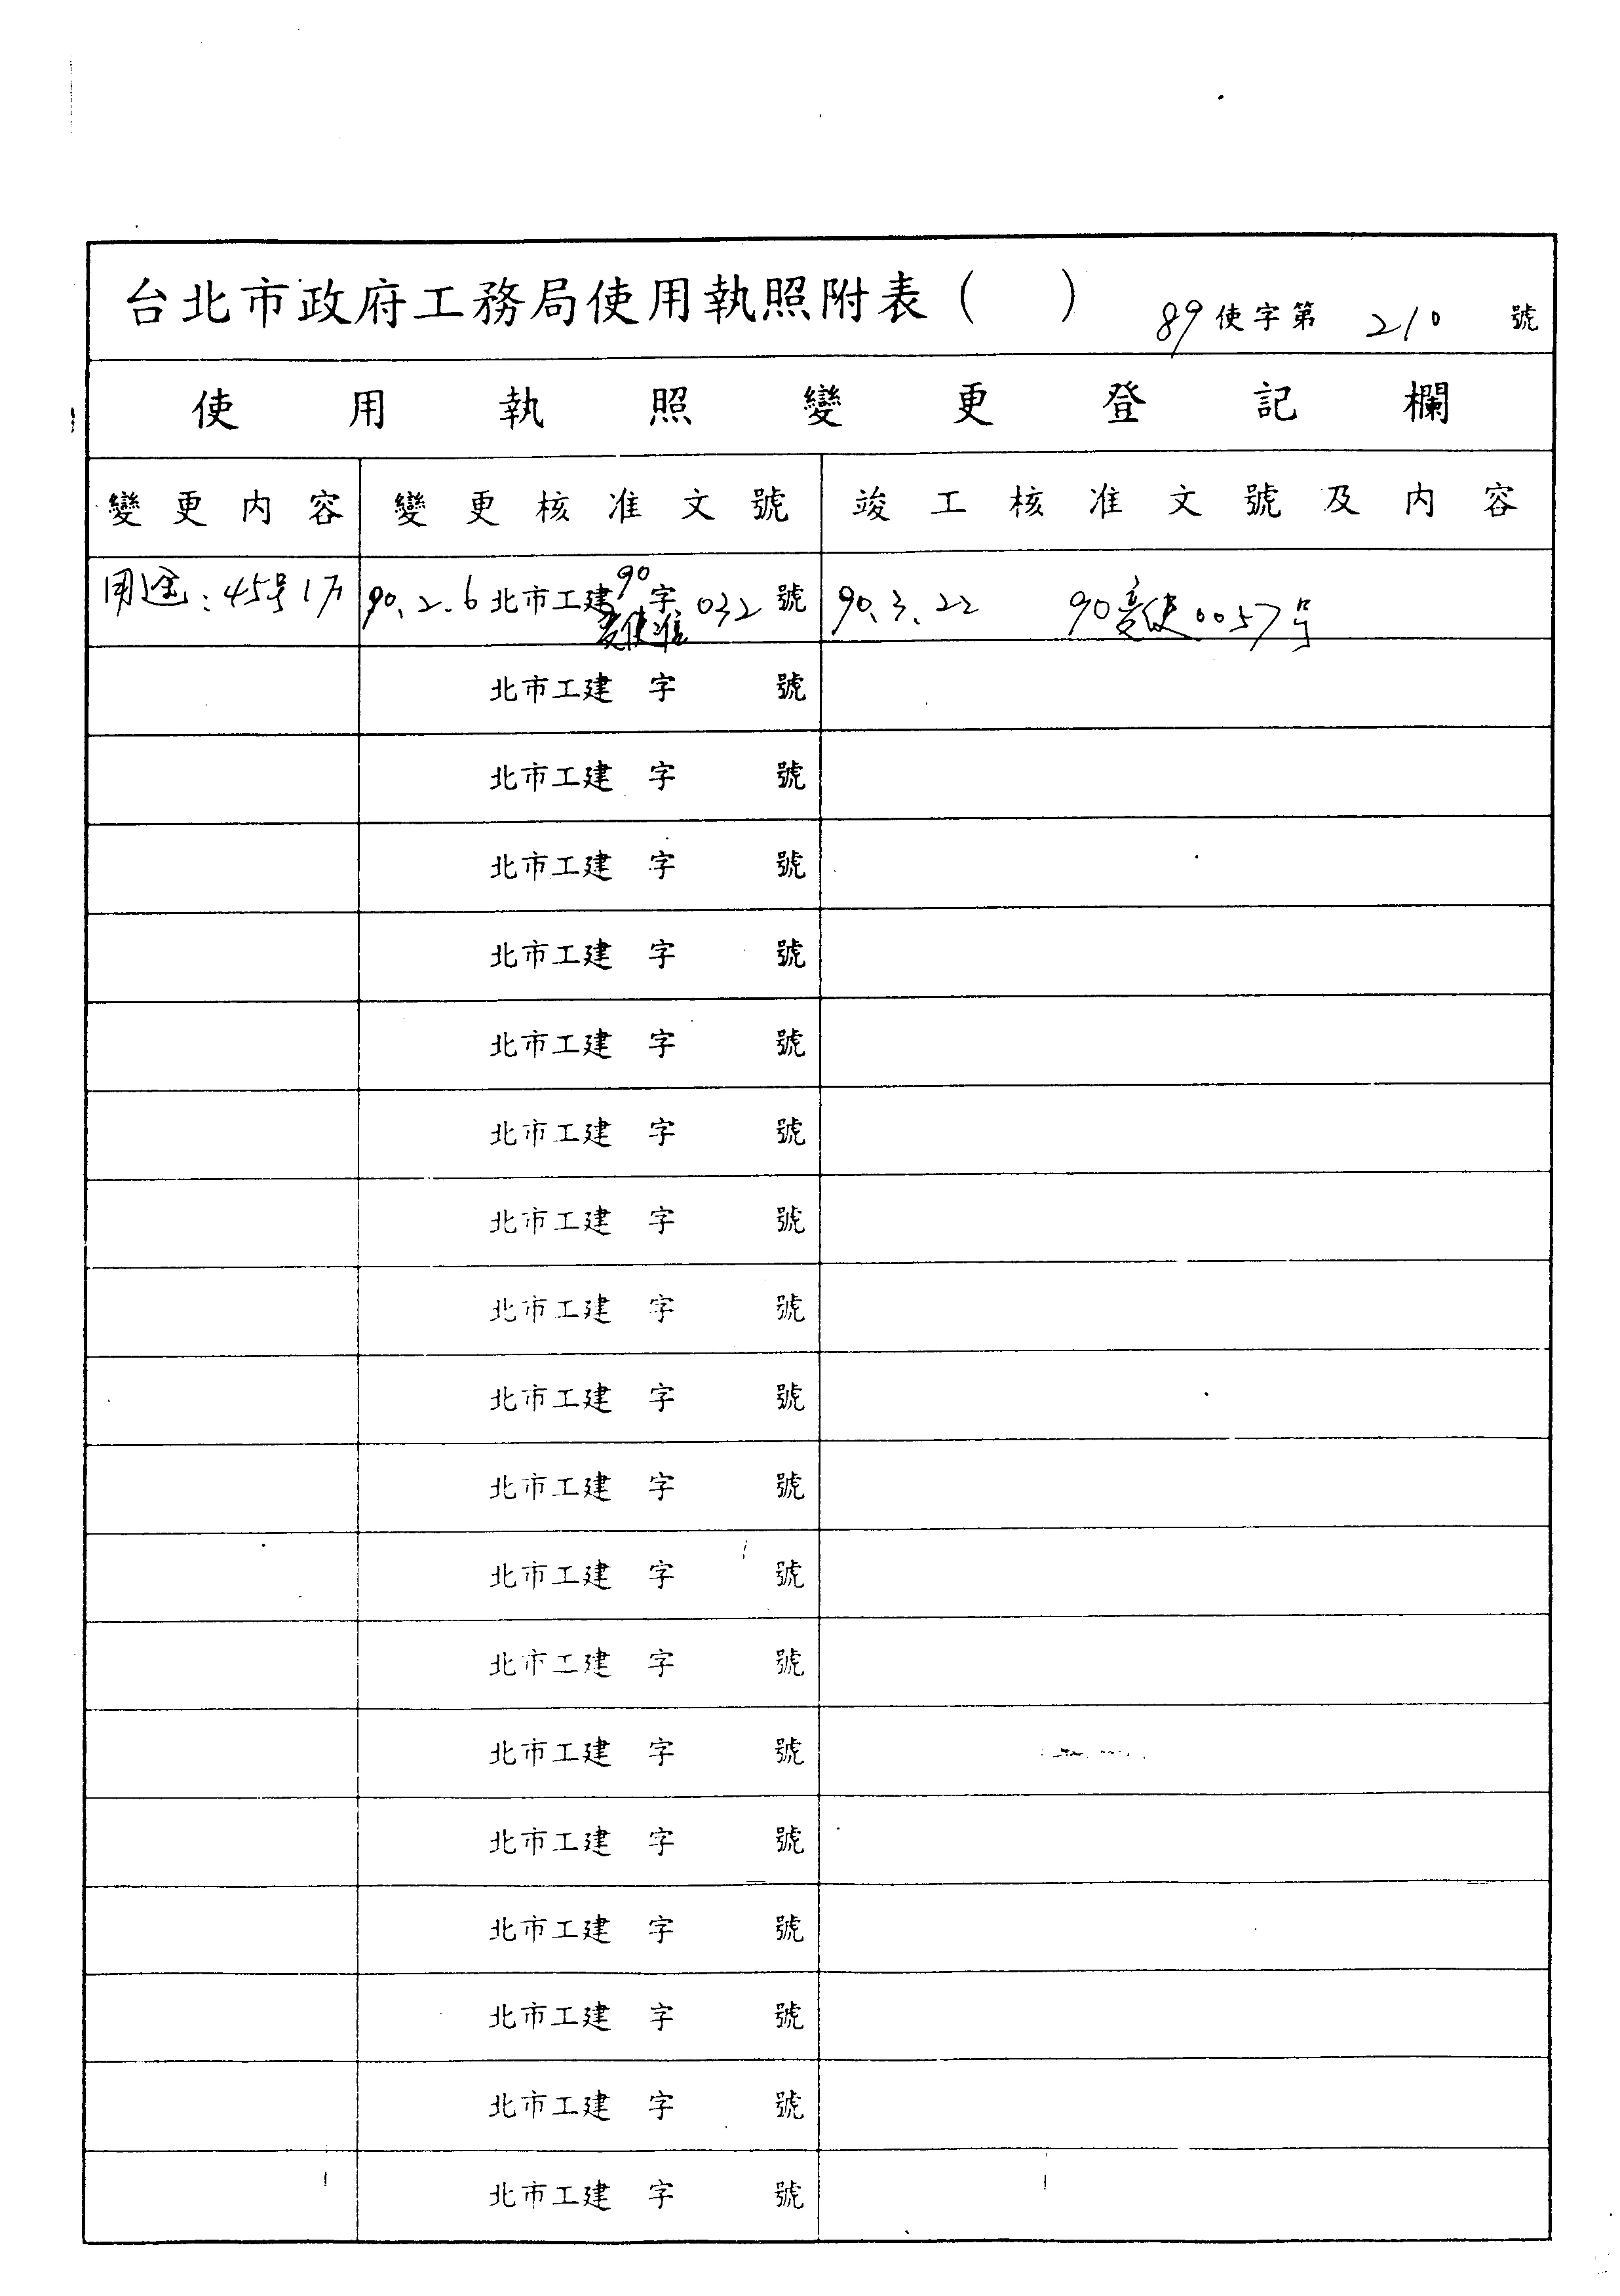 台北市政府工務局使用執照附表（　）　89使字第　210　號
使用執照變更登記欄
變更內容　變更核准文號　竣工核准文號及內容
用途：45号1万　90.2.6 北市工建90字032號　90.3.22　90變使0057号
變使准
北市工建　字　號
北市工建　字　號
北市工建　字　號
北市工建　字　號
北市工建　字　號
北市工建　字　號
北市工建　字　號
北市工建　字　號
北市工建　字　號
北市工建　字　號
北市工建　字　號
北市工建　字　號
北市工建　字　號
北市工建　字　號
北市工建　字　號
北市工建　字　號
北市工建　字　號
北市工建　字　號